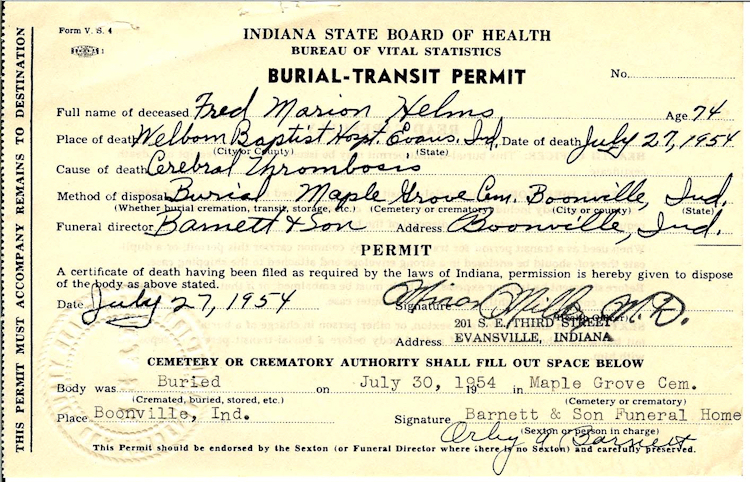 Form V. S. 4
INDIANA STATE BOARD OF HEALTH
BUREAU OF VITAL STATISTICS
BURIAL-TRANSIT PERMIT
No.
Full name of deceased Fred Marion Helms Age 74
Place of death Welborn Baptist Hospt. Evans. Ind. Date of death July 27, 1954
(City or County) (State)
Cause of death Cerebral Thrombosis
Method of disposal Burial Maple Grove Cem. Boonville, Ind.
(Whether burial cremation, transit, storage, etc.) (Cemetery or crematory) (City or county) (State)
Funeral director Barnett & Son Address Boonville, Ind.
PERMIT
A certificate of death having been filed as required by the laws of Indiana, permission is hereby given to dispose
of the body as above stated.
Date July 27, 1954 Signature M.D.
201 S. E. THIRD STREET
Address EVANSVILLE, INDIANA
CEMETERY OR CREMATORY AUTHORITY SHALL FILL OUT SPACE BELOW
Body was Buried on July 30, 1954 19 in Maple Grove Cem.
(Cremated, buried, stored, etc.) (Cemetery or crematory)
Place Boonville, Ind. Signature Barnett & Son Funeral Home
(Sexton or person in charge)
Orby A Barnett
This Permit should be endorsed by the Sexton (or Funeral Director where there is no Sexton) and carefully preserved.
THIS PERMIT MUST ACCOMPANY REMAINS TO DESTINATION